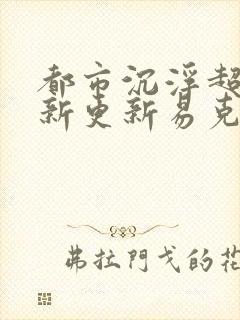 都市沉浮超
新更新易克
弗拉門戈的花